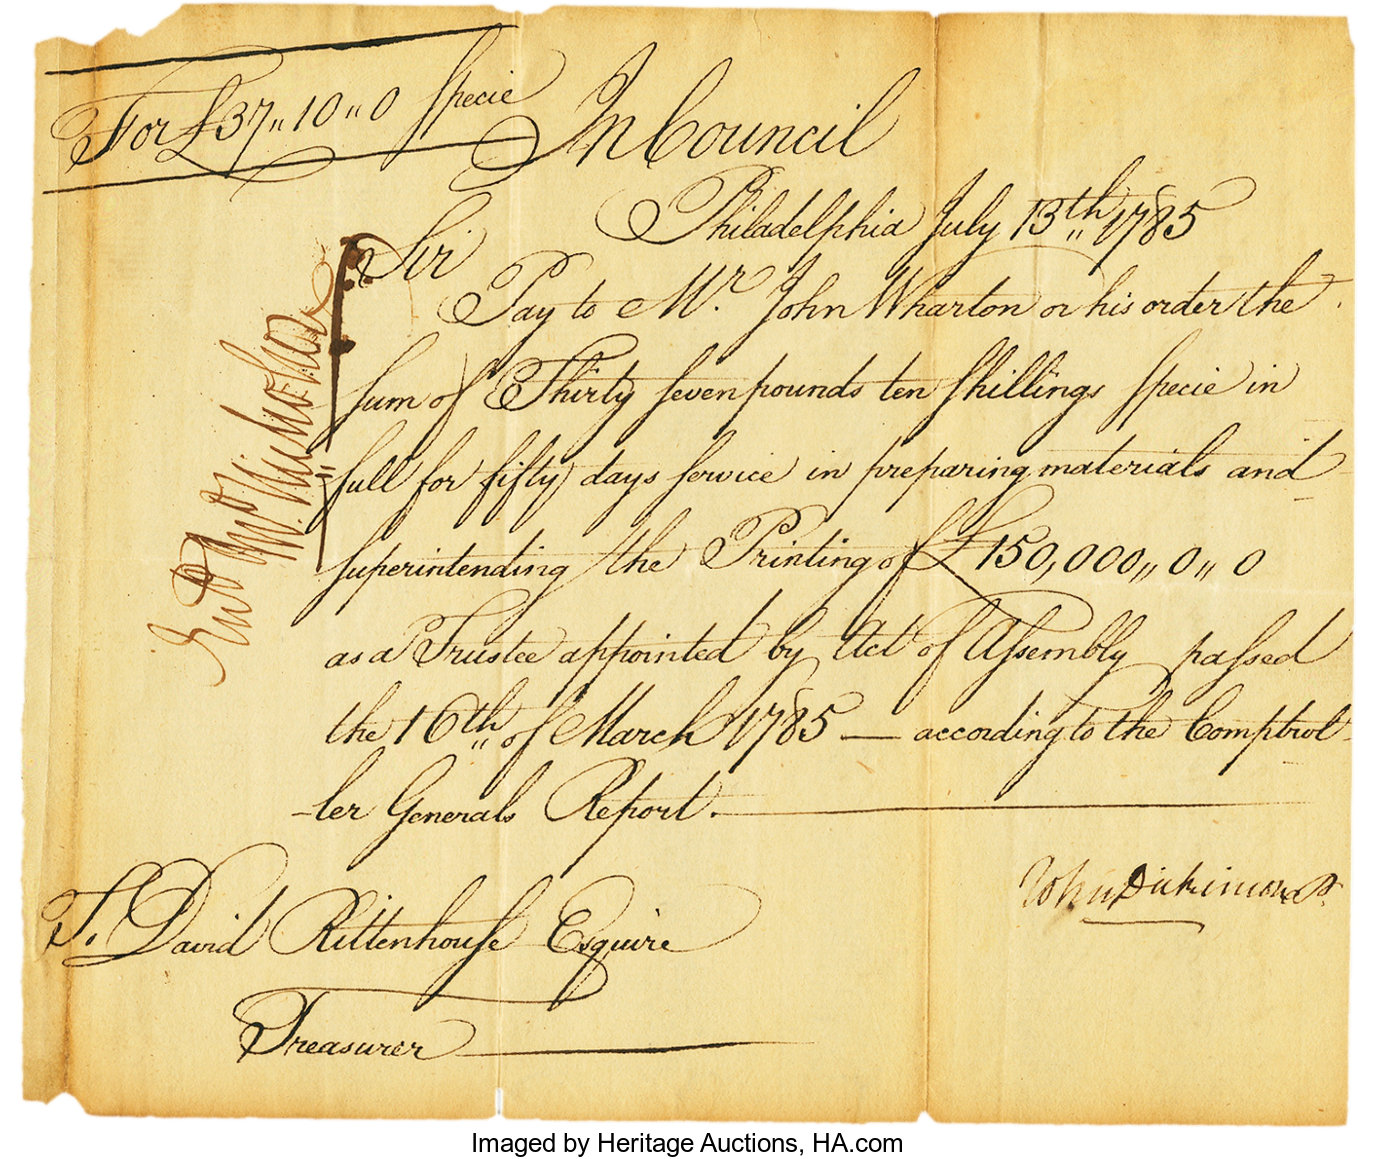 For £37,,10,,0 Specie
In Council
Philadelphia July 13th,, 1785
Sir
Pay to Mr. John Wharton or his order the
Sum of Thirty Seven pounds ten Shillings Specie in
full for fifty days Service in preparing materials and
Superintending the Printing of £150,000,,0,,0
as a Trustee appointed by Act of Assembly passed
the 16th,, of March 1785 — according to the Comptrol-
-ler Generals Report.
John Dickinson
T. David Rittenhouse Esquire
Treasurer
Jno. Nicholson
Imaged by Heritage Auctions, HA.com